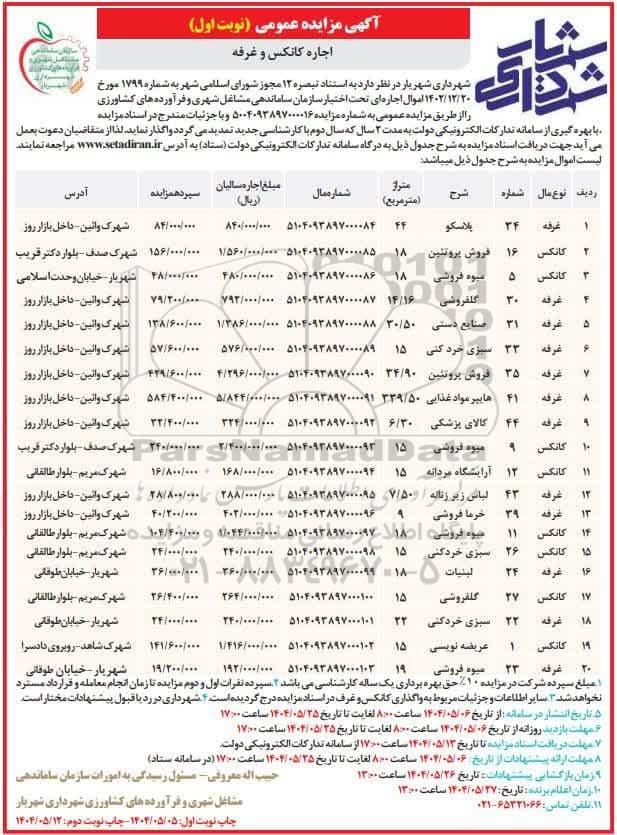 آگهی مزایده عمومی (نوبت اول)
اجاره کانکس و غرفه
سازمان ساماندهی
مشاغل شهری و
فرآورده‌های کشاورزی
شهرداری
شهریار
شهرداری شهریار در نظر دارد به استناد تبصره ۱۲ مجوز شورای اسلامی شهر به شماره ۱۷۹۹ مورخ
۱۴۰۲/۱۲/۲۰ اموال اجاره ای تحت اختیار سازمان ساماندهی مشاغل شهری و فرآورده های کشاورزی
را از طریق مزایده عمومی به شماره مزایده ۵۰۰۴۰۹۳۸۹۷۰۰۰۰۱۶ و با جزئیات مندرج در اسناد مزایده
، با بهره گیری از سامانه تدارکات الکترونیکی دولت به مدت ۲ سال که سال دوم با کارشناسی جدید تمدید می گردد واگذار نماید. لذا از متقاضیان دعوت بعمل
می آید جهت دریافت اسناد مزایده به شرح جدول ذیل به درگاه سامانه تدارکات الکترونیکی دولت (ستاد) به آدرس www.setadiran.ir مراجعه نمایند.
لیست اموال مزایده به شرح جدول ذیل میباشد:
ردیف نوع مال شماره شرح متراژ (مترمربع) شماره مال مبلغ اجاره سالیان (ریال) سپرده مزایده آدرس
۱ غرفه ۳۴ پلاسکو ۴۴ ۵۱۰۴۰۹۳۸۹۷۰۰۰۰۸۴ ۸۴۰/۰۰۰/۰۰۰ ۸۴/۰۰۰/۰۰۰ شهرک وائین-داخل بازار روز
۲ کانکس ۱۶ فروش پروتئین ۱۸ ۵۱۰۴۰۹۳۸۹۷۰۰۰۰۸۵ ۱/۵۶۰/۰۰۰/۰۰۰ ۱۵۶/۰۰۰/۰۰۰ شهرک صدف-بلوار دکتر قریب
۳ کانکس ۵ میوه فروشی ۱۸ ۵۱۰۴۰۹۳۸۹۷۰۰۰۰۸۶ ۴۸۰/۰۰۰/۰۰۰ ۴۸/۰۰۰/۰۰۰ شهریار-خیابان وحدت اسلامی
۴ غرفه ۳۰ گلفروشی ۱۴/۱۶ ۵۱۰۴۰۹۳۸۹۷۰۰۰۰۸۷ ۷۹۲/۰۰۰/۰۰۰ ۷۹/۲۰۰/۰۰۰ شهرک وائین-داخل بازار روز
۵ غرفه ۳۱ صنایع دستی ۳۰/۵۰ ۵۱۰۴۰۹۳۸۹۷۰۰۰۰۸۸ ۱/۳۸۶/۰۰۰/۰۰۰ ۱۳۸/۶۰۰/۰۰۰ شهرک وائین-داخل بازار روز
۶ غرفه ۳۳ سبزی خرد کنی ۱۵ ۵۱۰۴۰۹۳۸۹۷۰۰۰۰۸۹ ۵۷۶/۰۰۰/۰۰۰ ۵۷/۶۰۰/۰۰۰ شهرک وائین-داخل بازار روز
۷ غرفه ۳۵ فروش پروتئین ۳۴/۹۰ ۵۱۰۴۰۹۳۸۹۷۰۰۰۰۹۰ ۴/۲۹۶/۰۰۰/۰۰۰ ۴۲۹/۶۰۰/۰۰۰ شهرک وائین-داخل بازار روز
۸ غرفه ۴۱ هایپر مواد غذایی ۳۳۹/۵۰ ۵۱۰۴۰۹۳۸۹۷۰۰۰۰۹۱ ۵/۸۴۴/۰۰۰/۰۰۰ ۵۸۴/۴۰۰/۰۰۰ شهرک وائین-داخل بازار روز
۹ غرفه ۴۴ کالای پزشکی ۶/۳۰ ۵۱۰۴۰۹۳۸۹۷۰۰۰۰۹۲ ۳۲۴/۰۰۰/۰۰۰ ۳۲/۴۰۰/۰۰۰ شهرک وائین-داخل بازار روز
۱۰ کانکس ۹ میوه فروشی ۱۵ ۵۱۰۴۰۹۳۸۹۷۰۰۰۰۹۳ ۲/۴۰۰/۰۰۰/۰۰۰ ۲۴۰/۰۰۰/۰۰۰ شهرک صدف-بلوار دکتر قریب
۱۱ کانکس ۱۲ آرایشگاه مردانه ۱۵ ۵۱۰۴۰۹۳۸۹۷۰۰۰۰۹۴ ۱۶۸/۰۰۰/۰۰۰ ۱۶/۸۰۰/۰۰۰ شهرک مریم-بلوار طالقانی
۱۲ غرفه ۴۳ لباس زیر زنانه ۷/۵۰ ۵۱۰۴۰۹۳۸۹۷۰۰۰۰۹۵ ۲۸۸/۰۰۰/۰۰۰ ۲۸/۸۰۰/۰۰۰ شهرک وائین-داخل بازار روز
۱۳ غرفه ۳۹ خرما فروشی ۹ ۵۱۰۴۰۹۳۸۹۷۰۰۰۰۹۶ ۴۰۲/۰۰۰/۰۰۰ ۴۰/۲۰۰/۰۰۰ شهرک وائین-داخل بازار روز
۱۴ کانکس ۱۱ میوه فروشی ۱۸ ۵۱۰۴۰۹۳۸۹۷۰۰۰۰۹۷ ۱/۰۴۴/۰۰۰/۰۰۰ ۱۰۴/۴۰۰/۰۰۰ شهرک مریم-بلوار طالقانی
۱۵ کانکس ۲۶ سبزی خردکنی ۱۵ ۵۱۰۴۰۹۳۸۹۷۰۰۰۰۹۸ ۲۴۰/۰۰۰/۰۰۰ ۲۴/۰۰۰/۰۰۰ شهرک مریم-بلوار طالقانی
۱۶ غرفه ۲۴ لبنیات ۱۸ ۵۱۰۴۰۹۳۸۹۷۰۰۰۰۹۹ ۳۶۰/۰۰۰/۰۰۰ ۳۶/۰۰۰/۰۰۰ شهریار-خیابان طوقانی
۱۷ کانکس ۲۷ گلفروشی ۱۵ ۵۱۰۴۰۹۳۸۹۷۰۰۰۱۰۰ ۲۶۴/۰۰۰/۰۰۰ ۲۶/۴۰۰/۰۰۰ شهرک مریم-بلوار طالقانی
۱۸ غرفه ۲۲ سبزی خردکنی ۲۲ ۵۱۰۴۰۹۳۸۹۷۰۰۰۱۰۱ ۲۴۰/۰۰۰/۰۰۰ ۲۴/۰۰۰/۰۰۰ شهریار-خیابان طوقانی
۱۹ کانکس ۱ عریضه نویسی ۱۵ ۵۱۰۴۰۹۳۸۹۷۰۰۰۱۰۲ ۱/۴۱۶/۰۰۰/۰۰۰ ۱۴۱/۶۰۰/۰۰۰ شهرک شاهد-روبروی دادسرا
۲۰ غرفه ۲۳ میوه فروشی ۱۹ ۵۱۰۴۰۹۳۸۹۷۰۰۰۱۰۳ ۱۹۲/۰۰۰/۰۰۰ ۱۹/۲۰۰/۰۰۰ شهریار-خیابان طوقانی
۱.مبلغ سپرده شرکت در مزایده ۱۰٪ حق بهره برداری یک ساله کارشناسی می باشد ۲.سپرده نفرات اول و دوم مزایده تا زمان انجام معامله و قرارداد مسترد
نخواهد شد ۳.سایر اطلاعات و جزئیات مربوط به واگذاری کانکس و غرف در اسناد مزایده درج گردیده است. ۴.شهرداری در رد یا قبول پیشنهادات مختار است.
۵.تاریخ انتشار در سامانه : از تاریخ ۱۴۰۴/۰۵/۰۶ ساعت ۸:۰۰ لغایت تا تاریخ ۱۴۰۴/۰۵/۲۵ ساعت ۱۷:۰۰
۶.مهلت بازدید روزانه از تاریخ ۱۴۰۴/۰۵/۰۶ ساعت ۸:۰۰ لغایت تا تاریخ ۱۴۰۴/۰۵/۲۵ ساعت ۱۷:۰۰
۷.مهلت دریافت اسناد مزایده تا تاریخ ۱۴۰۴/۰۵/۱۳ ساعت ۱۷:۰۰ از سامانه تدارکات الکترونیکی دولت.
۸.مهلت ارائه پیشنهادات از تاریخ: ۱۴۰۴/۰۵/۰۶ ساعت ۸:۰۰ لغایت تا تاریخ ۱۴۰۴/۰۵/۲۵ ساعت ۱۷:۰۰ (در سامانه ستاد)
۹.زمان بازگشایی پیشنهادات :: تاریخ ۱۴۰۴/۰۵/۲۶ ساعت ۱۳:۰۰
۱۰.زمان اعلام برنده : تاریخ: ۱۴۰۴/۰۵/۲۷ ساعت ۱۳:۰۰
۱۱.تلفن تماس: ۶۵۳۲۱۰۶۶-۰۲۱
حبیب اله معروفی- مسئول رسیدگی به امورات سازمان ساماندهی
مشاغل شهری و فرآورده های کشاورزی شهرداری شهریار
چاپ نوبت اول: ۱۴۰۴/۰۵/۰۵-چاپ نوبت دوم: ۱۴۰۴/۰۵/۱۲
ParsNamadData
پایگاه اطلاع رسانی مناقصه و مزایده
۰۲۱-۸۸۳۴۹۶۷۰-۵